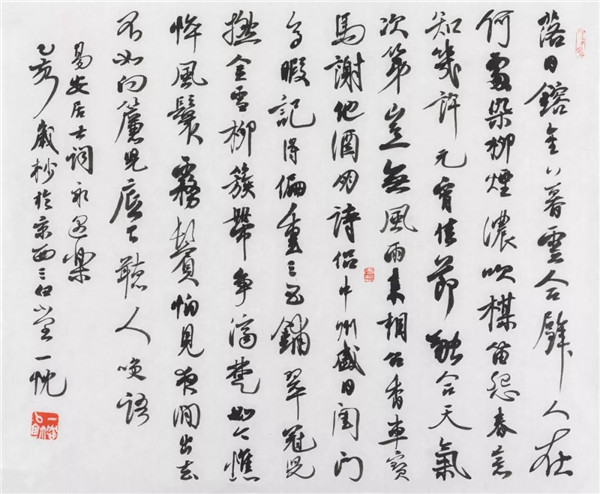 落日鎔金暮雲合璧人在
何處染柳煙濃吹楳笛怨春意
知幾許元宵佳節融合天氣
次第豈無風雨来相召香車寶
馬謝他酒朋詩侣中州盛日閨門
多暇記得偏重三五鋪翠冠兒
撚金雪柳簇帶争濟楚如今憔
悴風鬟霧鬢怕見夜間出去
不如向簾兒底下聽人笑語
易安居士詞永遇樂
亥歲杪於京西三堂一忱